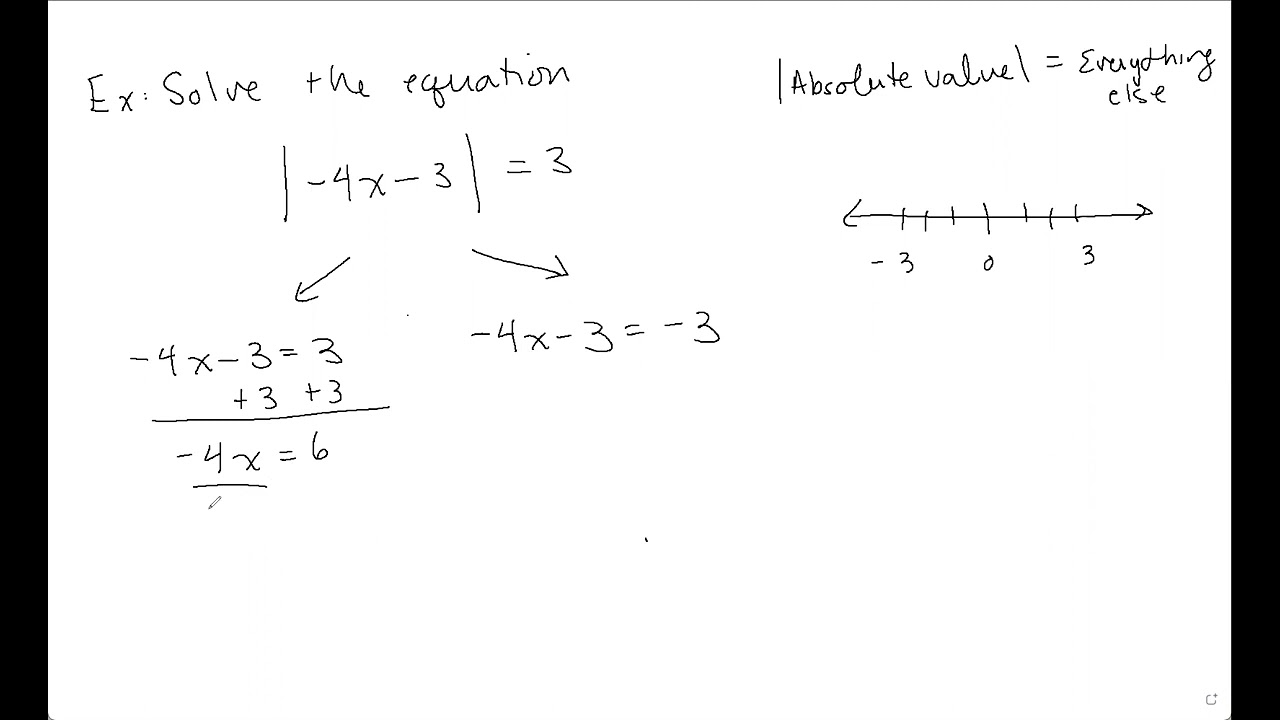 Ex: Solve the equation
|-4x-3| = 3
-4x-3 = 3
+3 +3
-4x = 6
-4x-3 = -3
|Absolute value| = Everything
else
-3 0 3